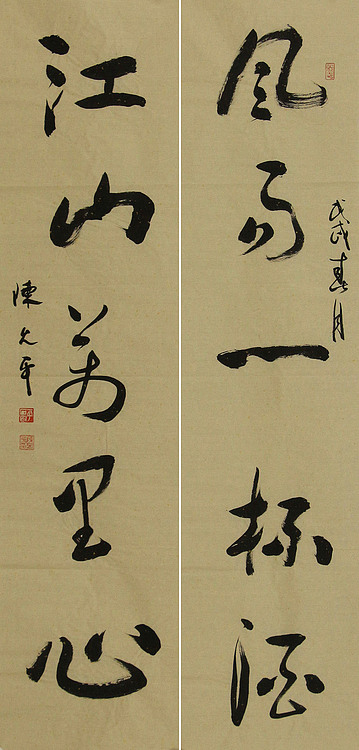 风雨一杯酒
戊戌春月
江山萬里心
陳允平